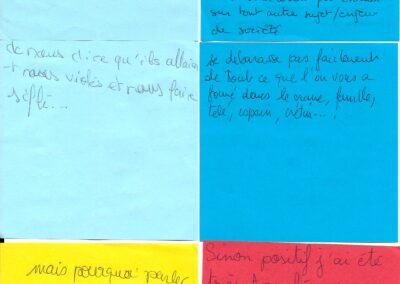 sur tout autre sujet/enjeu
de société
de nous dire ce qu'ils allaient
nous violés et nous faire
se débarasse pas facilement
de tout ce que l'on vous a
fourré dans le crane, famille,
télé, copain, crétin...!
mais pourquoi parler
Sinon positif j'ai été